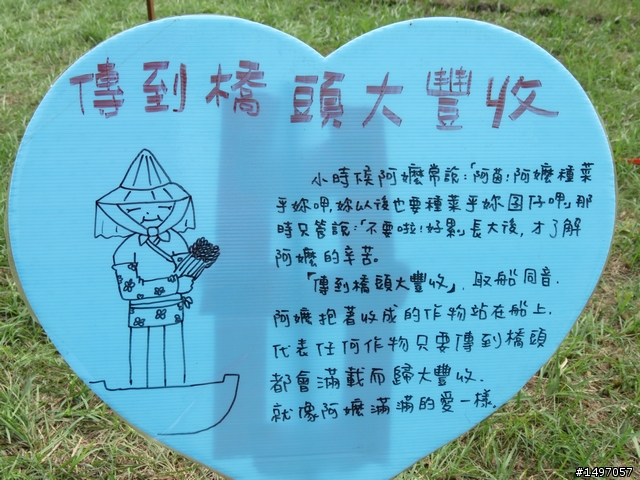 傳到橋頭大豐收
小時候阿嬤常說:「阿茵!阿嬤種菜
乎妳呷,妳以後也要種菜乎妳囝仔呷」那
時只管說:「不要啦!好累」長大後,才了解
阿嬤的辛苦。
「傳到橋頭大豐收」,取船同音,
阿嬤抱著收成的作物站在船上,
代表任何作物只要傳到橋頭
都會滿載而歸大豐收,
就像阿嬤滿滿的愛一樣。
#1497057